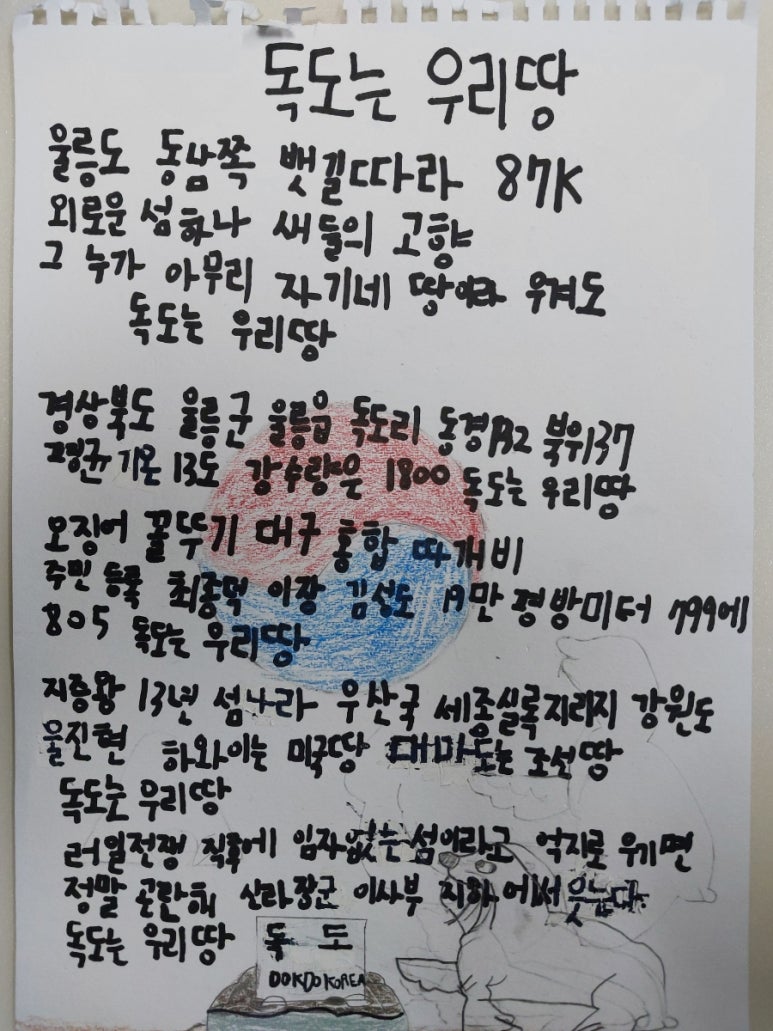 독도는 우리땅
울릉도 동남쪽 뱃길따라 87K
외로운 섬하나 새들의 고향
그 누가 아무리 자기네 땅이라 우겨도
독도는 우리땅
경상북도 울릉군 울릉읍 독도리 동경132 북위37
평균기온 13도 강수량은 1800 독도는 우리땅
오징어 꼴뚜기 대구 홍합 따개비
주민 등록 최종덕 이장 김성도 19만 평방미터 799에
805 독도는 우리땅
지증왕 13년 섬나라 우산국 세종실록지리지 강원도
울진현 하와이는 미국땅 대마도는 조선땅
독도는 우리땅
러일전쟁 직후에 임자없는섬이라고 억지로 우기면
정말 곤란해 신라장군 이사부 지하에서 웃는다
독도는 우리땅 독 도
DOKDO KOREA